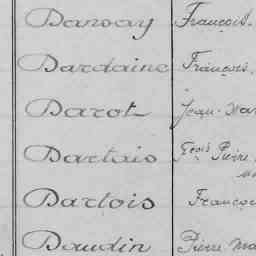 Darvay François.
Dardaine François.
Darot Jean-Mar
Dartais Fçois Pierre
Dartois François
Daudin Pierre Ma